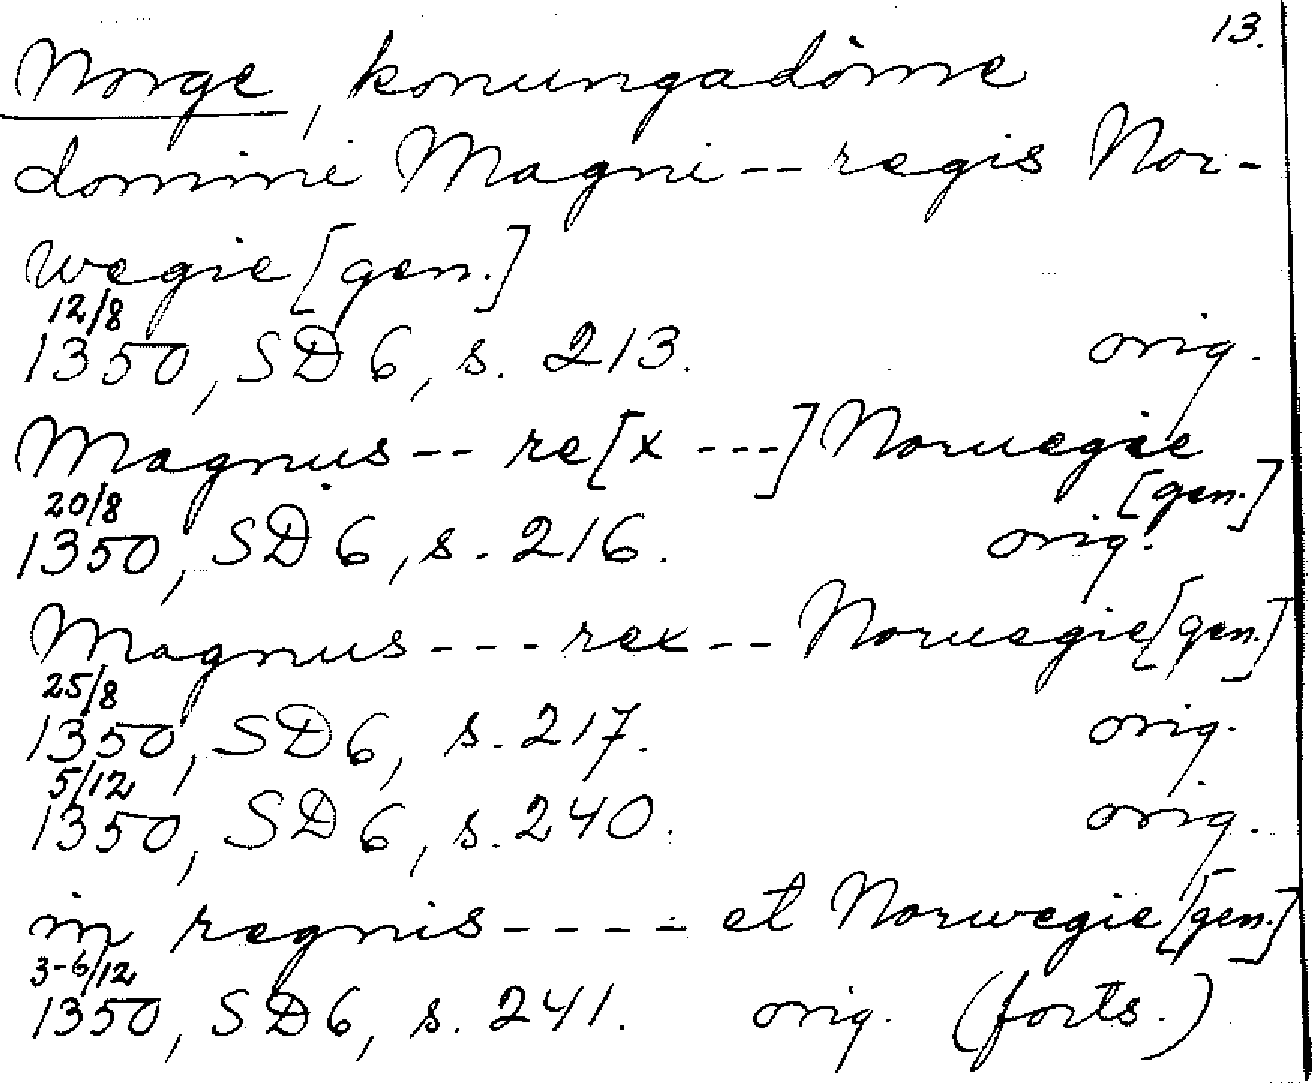 13.
Norge, konungadöme
domini Magni -- regis Nor-
wegie [gen.]
12/8
1350, SD 6, s. 213. orig.
Magnus -- re[x ---] Noruegie
[gen.]
20/8
1350, SD 6, s. 216. orig.
Magnus --- rex -- Noruegie [gen.]
25/8
1350, SD 6, s. 217. orig.
5/12
1350, SD 6, s. 240. orig.
in regnis ---- et Norwegie [gen.]
3-6/12
1350, SD 6, s. 241. orig. (forts.)